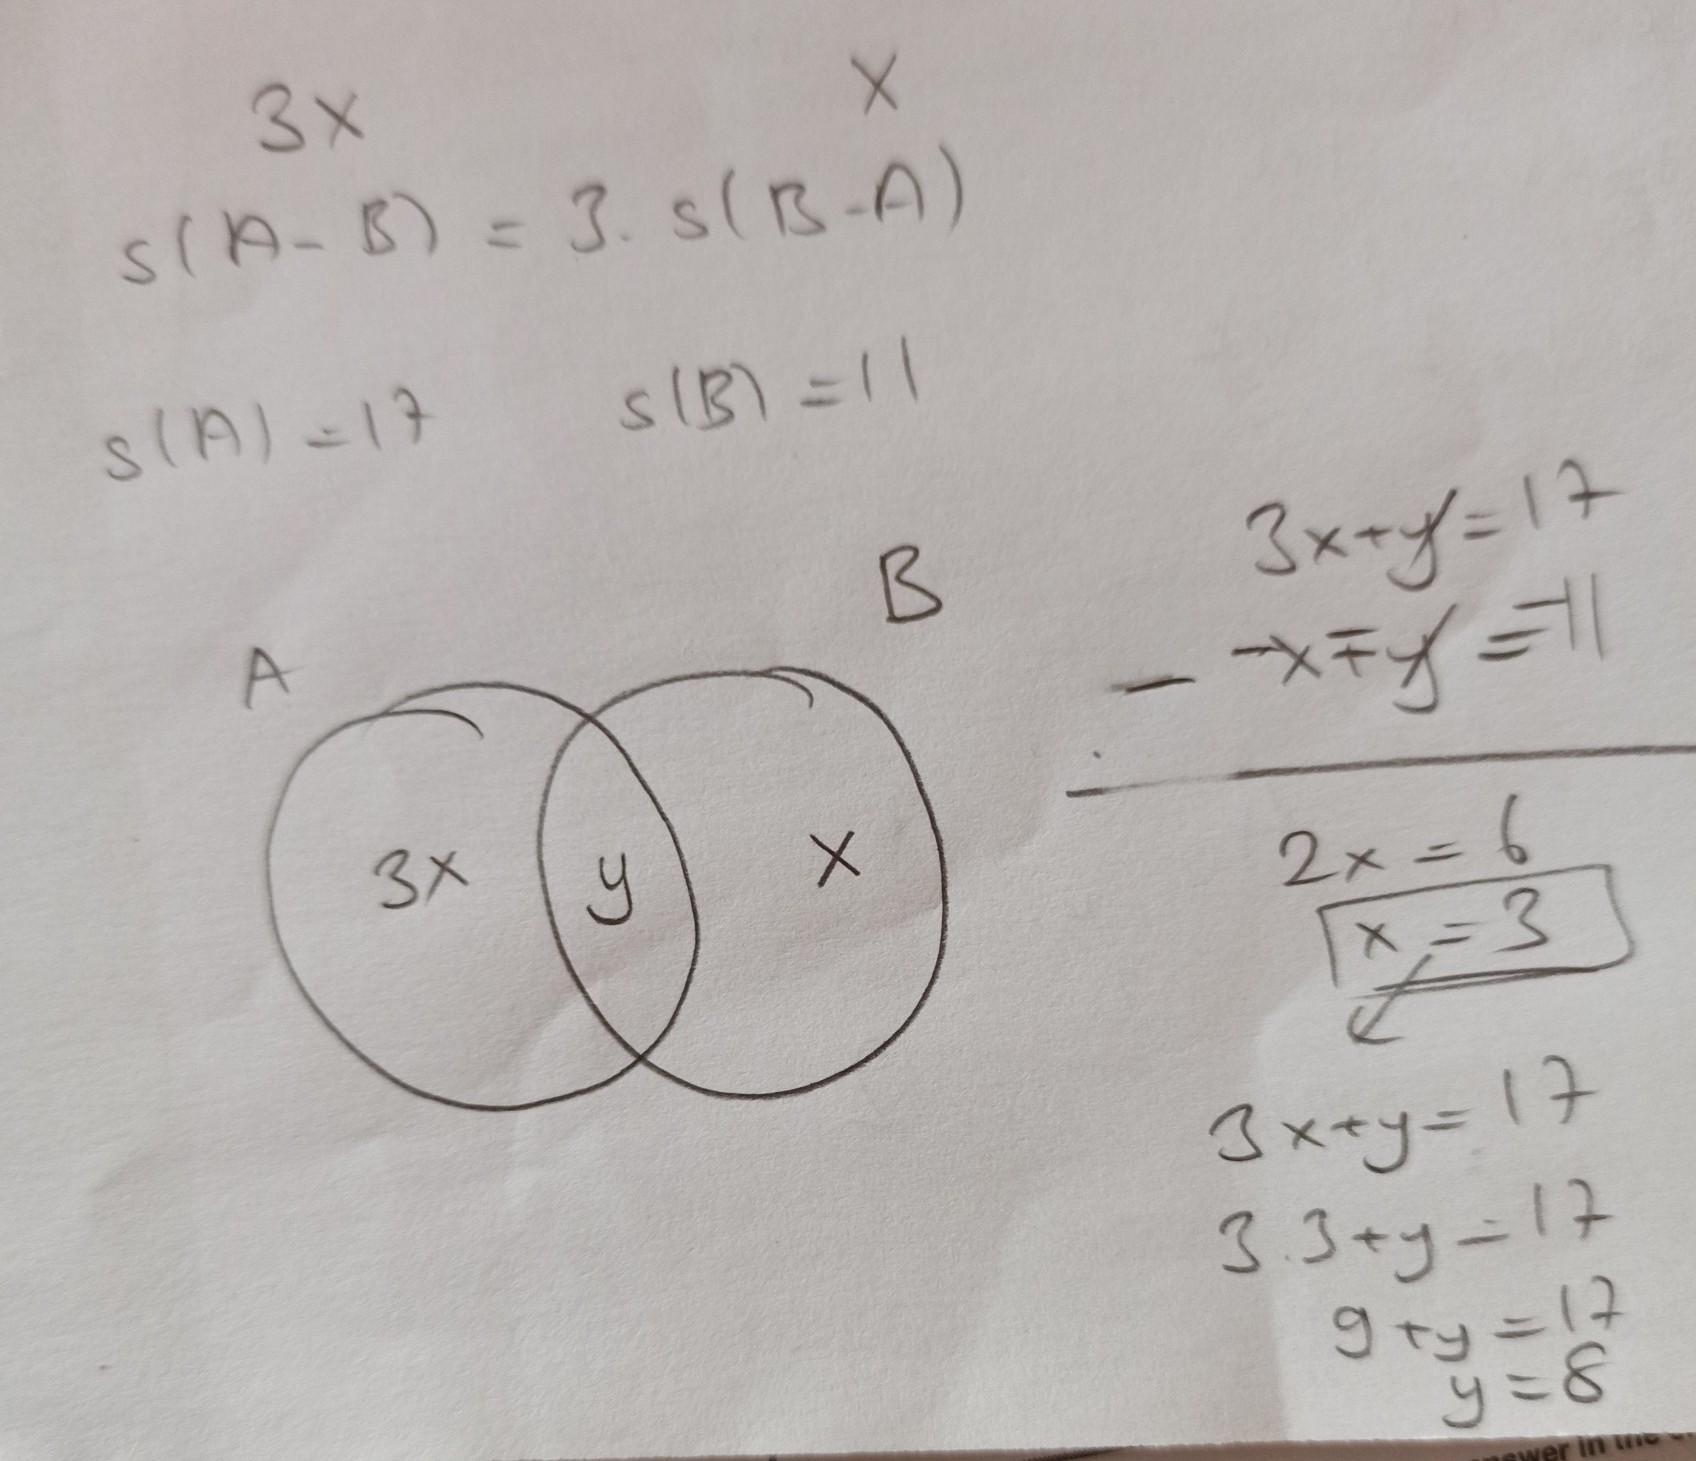 3x x
s(A-B) = 3. s(B-A)
s(A) = 17 s(B) = 11
A B
3x y x
3x+y=17
- -x∓y=-11
2x = 6
x = 3
3x+y= 17
3.3+y=17
9+y=17
y=8
in the